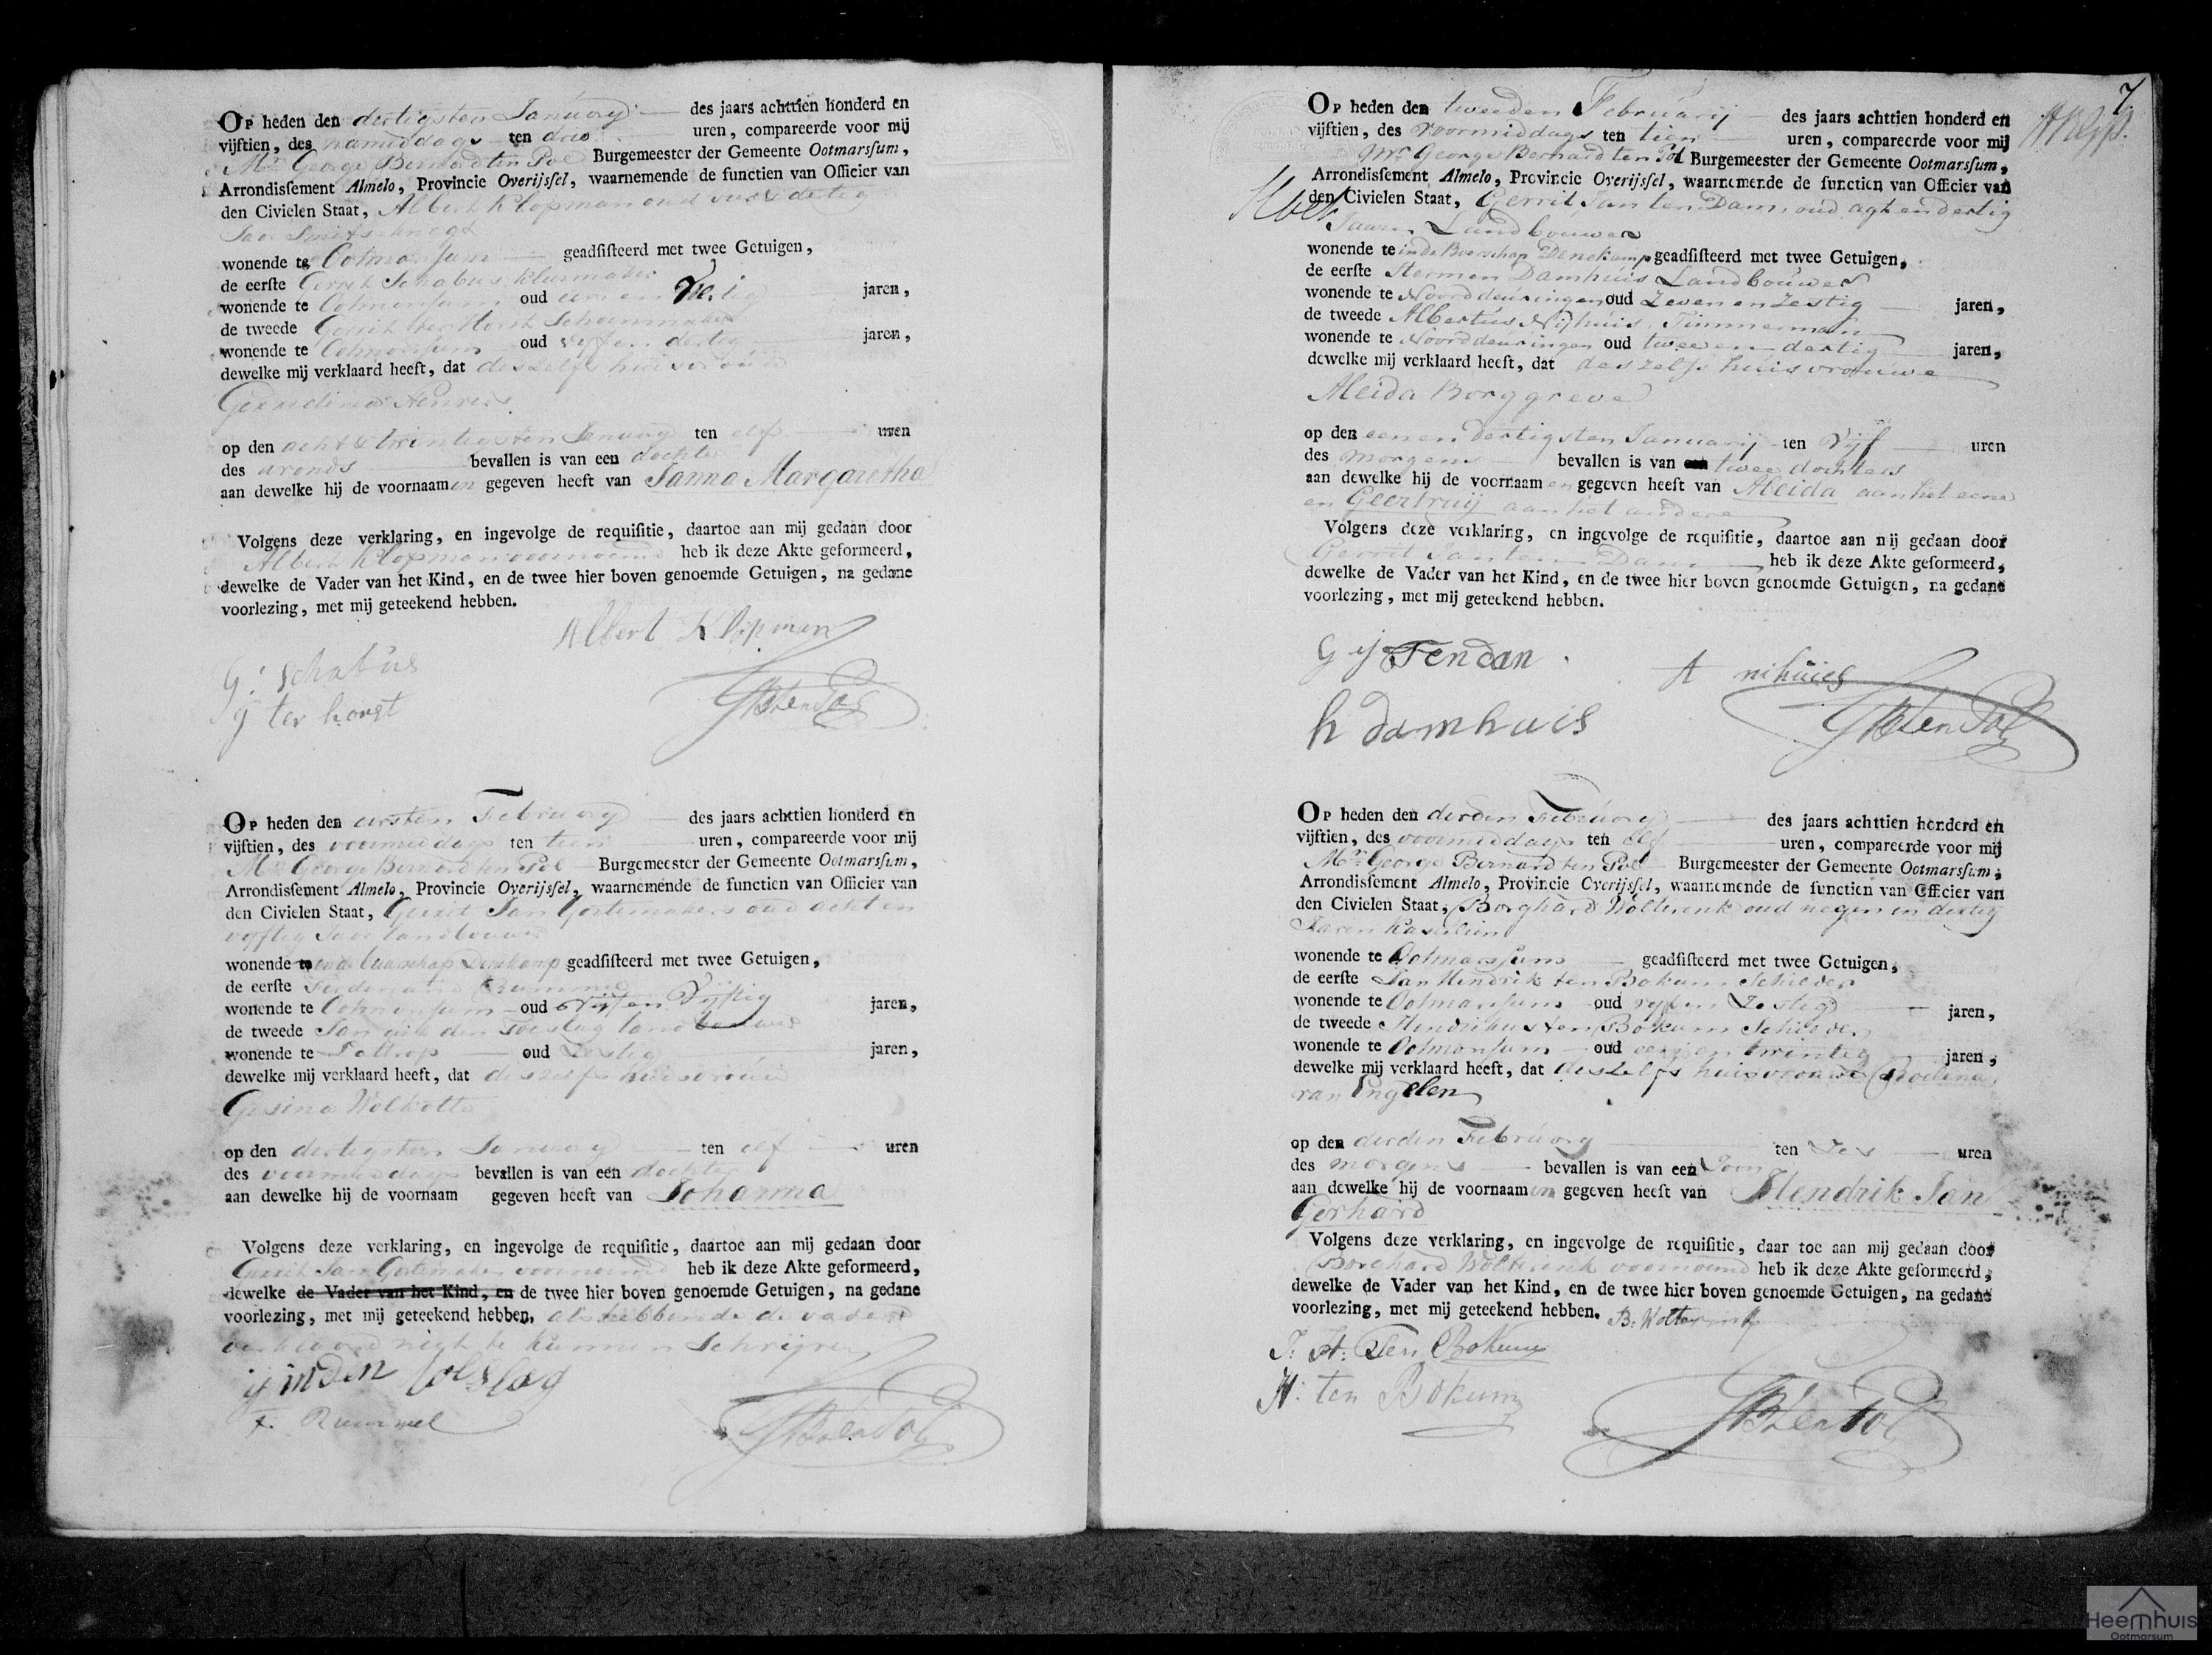 Op heden den dertigsten January des jaars achttien honderd en
vijftien, des namiddags ten drie uren, compareerde voor mij
Mr. George Bernard ten Pol Burgemeester der Gemeente Ootmarsſum,
Arrondisſement Almelo, Provincie Overijsſel, waarnemende de functien van Officier van
den Civielen Staat, Albert Klopman oud
wonende te Ootmarsum geadſiſteerd met twee Getuigen,
de eerſte Gerrit Schabus
wonende te Ootmarsum oud een en jaren,
de tweede Gerrit ter Horst Schoenmaker
wonende te Ootmarsum oud vijf en dertig jaren,
dewelke mij verklaard heeft, dat deszelfs huisvrouw
Gerardina
op den acht & twintigsten January ten elf uren
des avonds bevallen is van een dochter
aan dewelke hij de voornaamen gegeven heeft van Janna Margaretha
Volgens deze verklaring, en ingevolge de requiſitie, daartoe aan mij gedaan door
Albert Klopman voornoemd heb ik deze Akte geformeerd,
dewelke de Vader van het Kind, en de twee hier boven genoemde Getuigen, na gedane
voorlezing, met mij geteekend hebben.
Albert Klopman
G: Schabus
g ter horst
GBtenPol
Op heden den eersten February des jaars achttien honderd en
vijftien, des voormiddags ten tien uren, compareerde voor mij
Mr. George Bernard ten Pol Burgemeester der Gemeente Ootmarsſum,
Arrondisſement Almelo, Provincie Overijsſel, waarnemende de functien van Officier van
den Civielen Staat, Gerrit Jan oud acht en
vyftig Jaar landbouwer
wonende in de buurschap Denekamp geadſiſteerd met twee Getuigen,
de eerſte Ferdinand Rummel
wonende te Ootmarsum oud vijf en Vijftig jaren,
de tweede Jan landbouwer
wonende te oud zestig jaren,
dewelke mij verklaard heeft, dat deszelfs huisvrouw
Gesina Wolkotte
op den dertigsten January ten elf uren
des voormiddags bevallen is van een dochter
aan dewelke hij de voornaam gegeven heeft van Johanna
Volgens deze verklaring, en ingevolge de requiſitie, daartoe aan mij gedaan door
Gerrit Jan voornoemd heb ik deze Akte geformeerd,
dewelke de Vader van het Kind, en de twee hier boven genoemde Getuigen, na gedane
voorlezing, met mij geteekend hebben, als hebbende de vader
verklaard nigt te kunnen Schrijven
F. Rummel
GBtenPol
7
Op heden den tweeden Februarij des jaars achttien honderd en
vijftien, des voormiddags ten tien uren, compareerde voor mij
Mr. George Bernard ten Pol Burgemeester der Gemeente Ootmarsſum,
Arrondisſement Almelo, Provincie Overijsſel, waarnemende de functien van Officier van
den Civielen Staat, Gerrit Jan ten Dam, oud agt en dertig
Jaaren Landbouwer
wonende te in de Boerschap Denekamp geadſiſteerd met twee Getuigen,
de eerſte Hermen Damhuis Landbouwer
wonende te Noorddeuringen oud Zeven en Zestig jaren,
de tweede Albertus Nijhuis, Timmerman
wonende te Noorddeuringen oud twee en dertig jaren,
dewelke mij verklaard heeft, dat deszelfs huisvrouwe
Aleida Borggreve
op den een en dertigsten Januarij ten Vijf uren
des morgens bevallen is van twee dochters
aan dewelke hij de voornaamen gegeven heeft van Aleida aan het eene
en Geertruij aan het andere
Volgens deze verklaring, en ingevolge de requiſitie, daartoe aan mij gedaan door
Gerrit Jan ten Dam heb ik deze Akte geformeerd,
dewelke de Vader van het Kind, en de twee hier boven genoemde Getuigen, na gedane
voorlezing, met mij geteekend hebben.
G J Tendam
A nihuies
h damhuis
GBtenPol
Op heden den derden February des jaars achttien honderd en
vijftien, des voormiddags ten elf uren, compareerde voor mij
Mr. George Bernard ten Pol Burgemeester der Gemeente Ootmarsſum,
Arrondisſement Almelo, Provincie Overijsſel, waarnemende de functien van Officier van
den Civielen Staat, Borghard Wolterink oud negen en dertig
Jaren Kastelein
wonende te Ootmarsum geadſiſteerd met twee Getuigen,
de eerſte Jan Hendrik ten Bokum Schilder
wonende te Ootmarsum oud vyf en Zestig jaren,
de tweede Hendrikus ten Bokum Schilder
wonende te Ootmarsum oud een en twintig jaren,
dewelke mij verklaard heeft, dat deszelfs huisvrouwe
van Engelen
op den derden February ten Zes uren
des morgens bevallen is van een Zoon
aan dewelke hij de voornaamen gegeven heeft van Hendrik Jan
Gerhard
Volgens deze verklaring, en ingevolge de requiſitie, daar toe aan mij gedaan door
Borghard Wolterink voornoemd heb ik deze Akte geformeerd,
dewelke de Vader van het Kind, en de twee hier boven genoemde Getuigen, na gedane
voorlezing, met mij geteekend hebben. B: Wolterink
J: H: Ten Bokum
H: ten Bokum
GBtenPol
Heemhuis
Ootmarsum